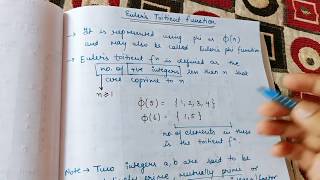 Euler's Totient Function
→ It is represented using phi as ϕ(n)
and may also be called Euler's phi function
→ Euler's totient fⁿ is defined as the
no. of +ve integers less than n that
are coprime to n
n≥1
ϕ(5) = {1,2,3,4}
ϕ(6) = {1,5}
no. of elements in these
is the totient fⁿ.
Note → Two integers a, b are said to be
prime, mutually prime or